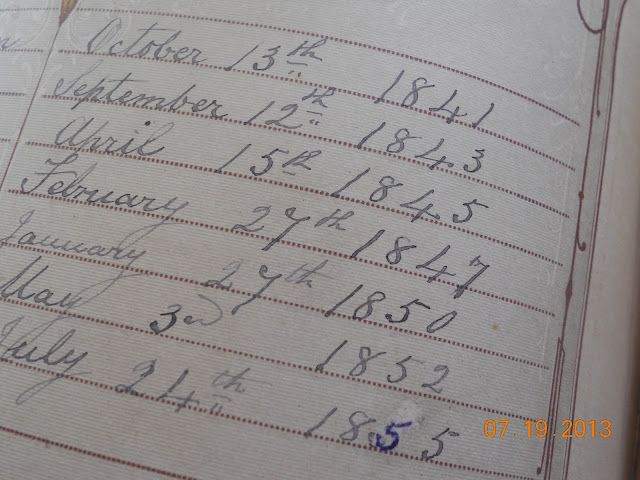 October 13th 1841
September 12th 1843
April 15th 1845
February 27th 1847
January 27th 1850
May 3d 1852
July 24th 1855
07.19.2013